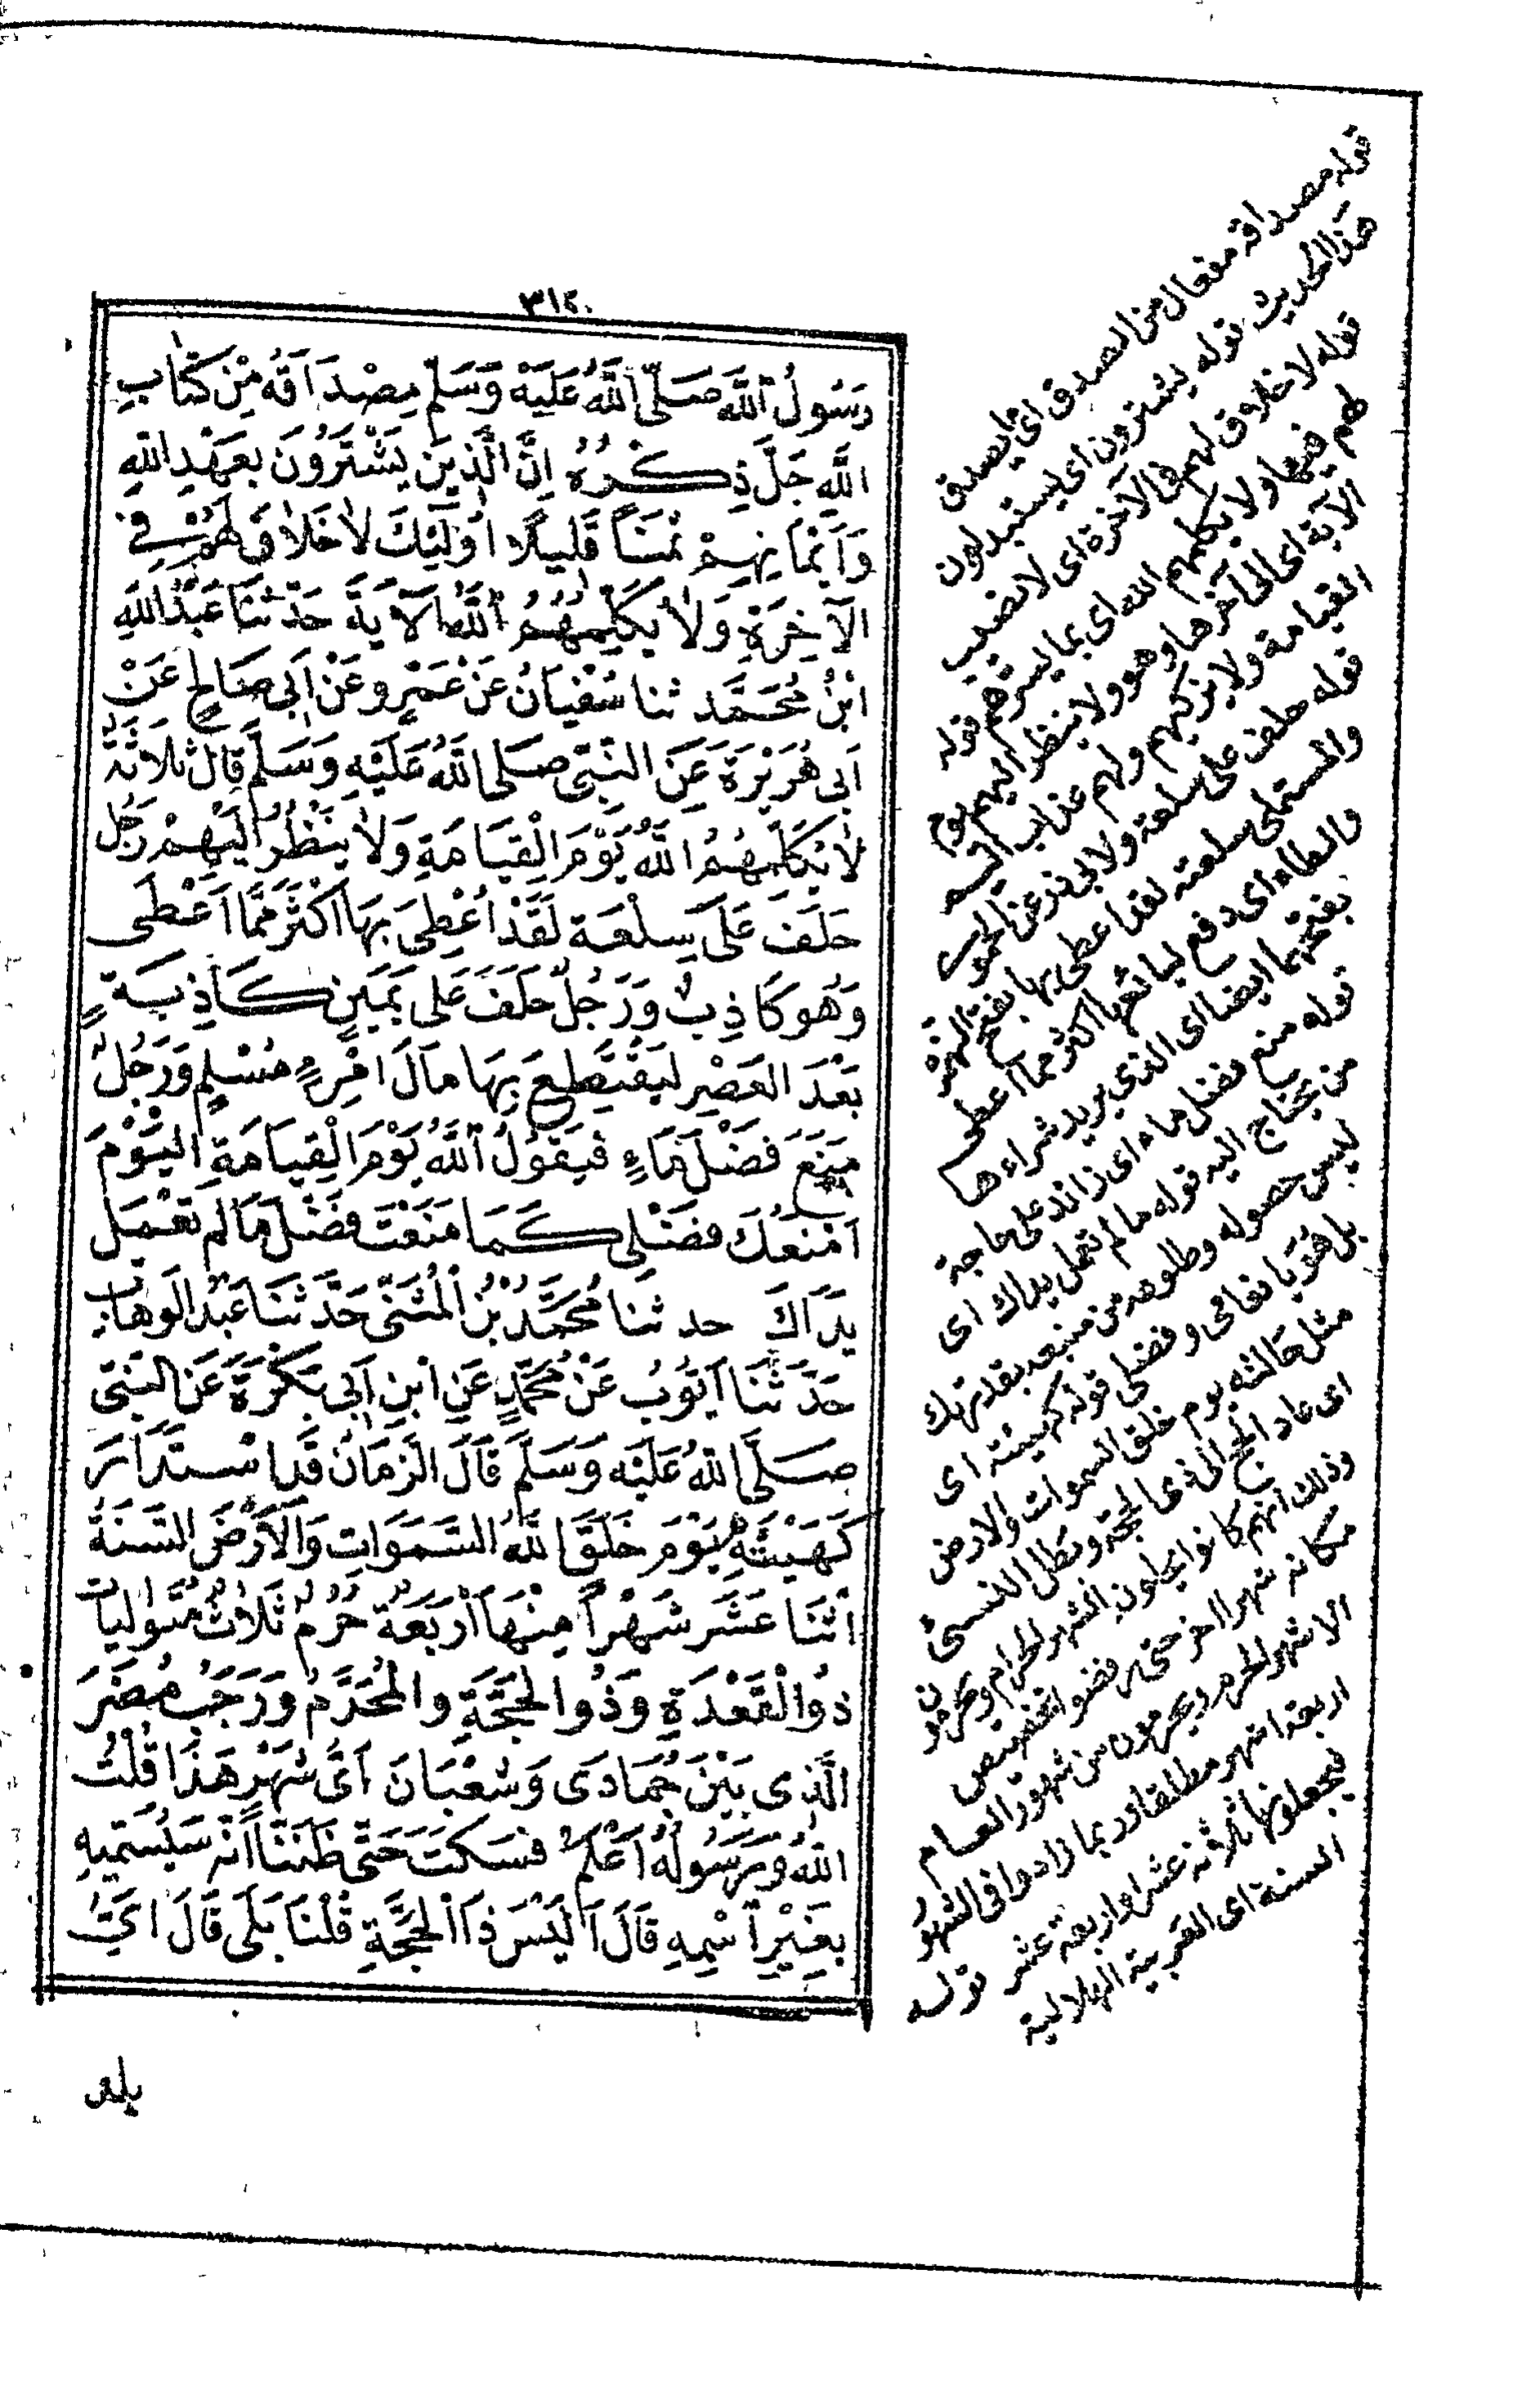 ٣١٢٠
رَسُولُ اللَّهِ صَلَّى اللَّهُ عَلَيْهِ وَسَلَّمَ مِصْدَاقَهُ مِنْ كِتَابِ
اللَّهِ جَلَّ ذِكْرُهُ إِنَّ الَّذِينَ يَشْتَرُونَ بِعَهْدِ اللهِ
وَأَيْمَانِهِمْ ثَمَنًا قَلِيلًا أُولَئِكَ لَا خَلَاقَ لَهُمْ فِي
الْآخِرَةِ وَلَا يُكَلِّمُهُمُ اللَّهُ الْآيَةَ حَدَّثَنَا عَبْدُ اللَّهِ
ابْنُ مُحَمَّد ثنا سُفْيَانُ عَنْ عَمْرٍو عَنْ أَبِي صَالِحٍ عَنْ
أَبِي هُرَيْرَةَ عَنِ النَّبِيِّ صَلَّى اللَّهُ عَلَيْهِ وَسَلَّمَ قَالَ ثَلَاثَةٌ
لَا يُكَلِّمُهُمُ اللَّهُ يَوْمَ الْقِيَامَةِ وَلَا يَنْظُرُ إِلَيْهِمْ رَجُلٌ
حَلَفَ عَلَى سِلْعَةٍ لَقَدْ أُعْطِيَ بِهَا أَكْثَرَ مِمَّا أَعْطَى
وَهُوَ كَاذِبٌ وَرَجُلٌ حَلَفَ عَلَى يَمِينٍ كَاذِبَةٍ
بَعْدَ الْعَصْرِ لِيَقْتَطِعَ بِهَا مَالَ امْرِءٍ مُسْلِمٍ وَرَجُلٌ
مَنَعَ فَضْلَ مَاءٍ فَيَقُولُ اللَّهُ يَوْمَ الْقِيَامَةِ الْيَوْمَ
أَمْنَعُكَ فَضْلِي كَمَا مَنَعْتَ فَضْلَ مَا لَمْ تَعْمَلْ
يَدَاكَ حدثنا مُحَمَّدُ بْنُ الْمُثَنَّى حَدَّثَنَا عَبْدُ الْوَهَّابِ
حَدَّثَنَا أَيُّوبُ عَنْ مُحَمَّدٍ عَنِ ابْنِ أَبِي بَكْرَةَ عَنِ النَّبِيِّ
صَلَّى اللَّهُ عَلَيْهِ وَسَلَّمَ قَالَ الزَّمَانُ قَدِ اسْتَدَارَ
كَهَيْئَتِهِ يَوْمَ خَلَقَ اللَّهُ السَّمَوَاتِ وَالْأَرْضَ السَّنَةُ
اثْنَا عَشَرَ شَهْرًا مِنْهَا أَرْبَعَةٌ حُرُمٌ ثَلَاثٌ مُتَوَالِيَاتٌ
ذُو الْقَعْدَةِ وَذُو الْحِجَّةِ وَالْمُحَرَّمُ وَرَجَبُ مُضَرَ
الَّذِي بَيْنَ جُمَادَى وَشَعْبَانَ أَيُّ شَهْرٍ هَذَا قُلْتُ
اللَّهُ وَرَسُولُهُ أَعْلَمُ فَسَكَتَ حَتَّى ظَنَنَّا أَنَّهُ سَيُسَمِّيهِ
بِغَيْرِ اسْمِهِ قَالَ أَلَيْسَ ذَا الْحِجَّةِ قُلْنَا بَلَى قَالَ أَيُّ
بلد
قوله مصداقه مفعال من الصدق اى ما يصدق
هذا الحديث قوله يشترون اى يستبدلون
قوله لا خلاق لهم فى الآخرة اى لا نصيب
لهم فيها ولا يكلمهم الله اى بما يسرهم قوله
الآية اى الى آخرها وهو ولا ينظر اليهم يوم
القيامة ولا يزكيهم ولهم عذاب اليم
قوله حلف على سلعة ولابى ذر عن الحموى
والمستملى سلعته لقد اعطى بها بفتح الهمزة
والطاء اى دفع لبائعها اكثر مما اعطى
بفتحهما ايضا اى الذى يريد شراءها
قوله منع فضل ماء اى زائد على حاجته
من يحتاج اليه قوله ما لم تعمل يداك اى
ليس حصوله وطلوعه من منبعه بقدرتك
بل هو بانعامى وفضلى قوله كهيئته اى
مثل حالته يوم خلق السموات والارض
اى عاد الحج الى ذى الحجة وبطل النسئ
وذلك انهم كانوا يحلون الشهر الحرام ويحرمون
مكانه شهرا اخر حتى رفضوا تخصيص
الاشهر الحرم ويحرمون من شهور العام
اربعة اشهر مطلقا وربما زادوا فى الشهور
فيجعلونها ثلاثة عشر او اربعة عشر قوله
السنة اى العربية الهلالية